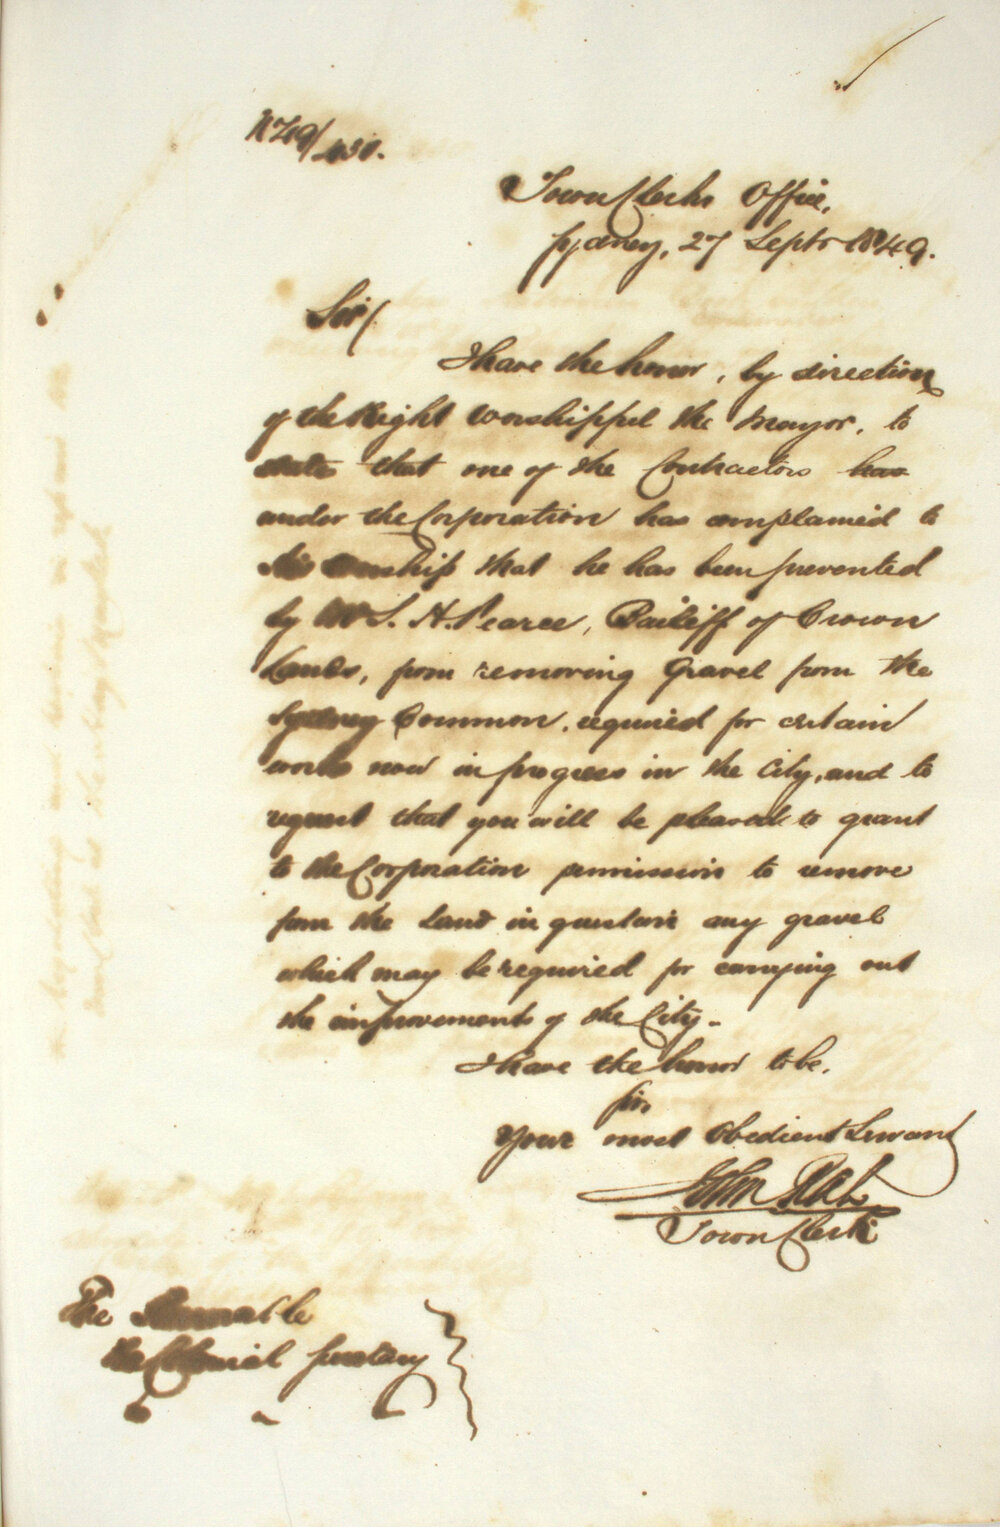 Town Clerks Office,
Sydney, 27 Septr 1849.
Sir
I have the honor, by direction
of the Right Worshipful the Mayor, to
state that one of the Contractors has
under the Corporation has complained to
His Worship that he has been prevented
by Mr S. H. Pearce, Bailiff of Crown
Lands, from removing Gravel from the
Sydney Common, required for certain
works now in progress in the City, and to
request that you will be pleased to grant
to the Corporation permission to remove
from the Land in question any gravel
which may be required for carrying out
the improvements of the City.
I have the honor to be,
Sir,
Your most Obedient Servant
John
Town Clerk
The Honorable
the Colonial Secretary